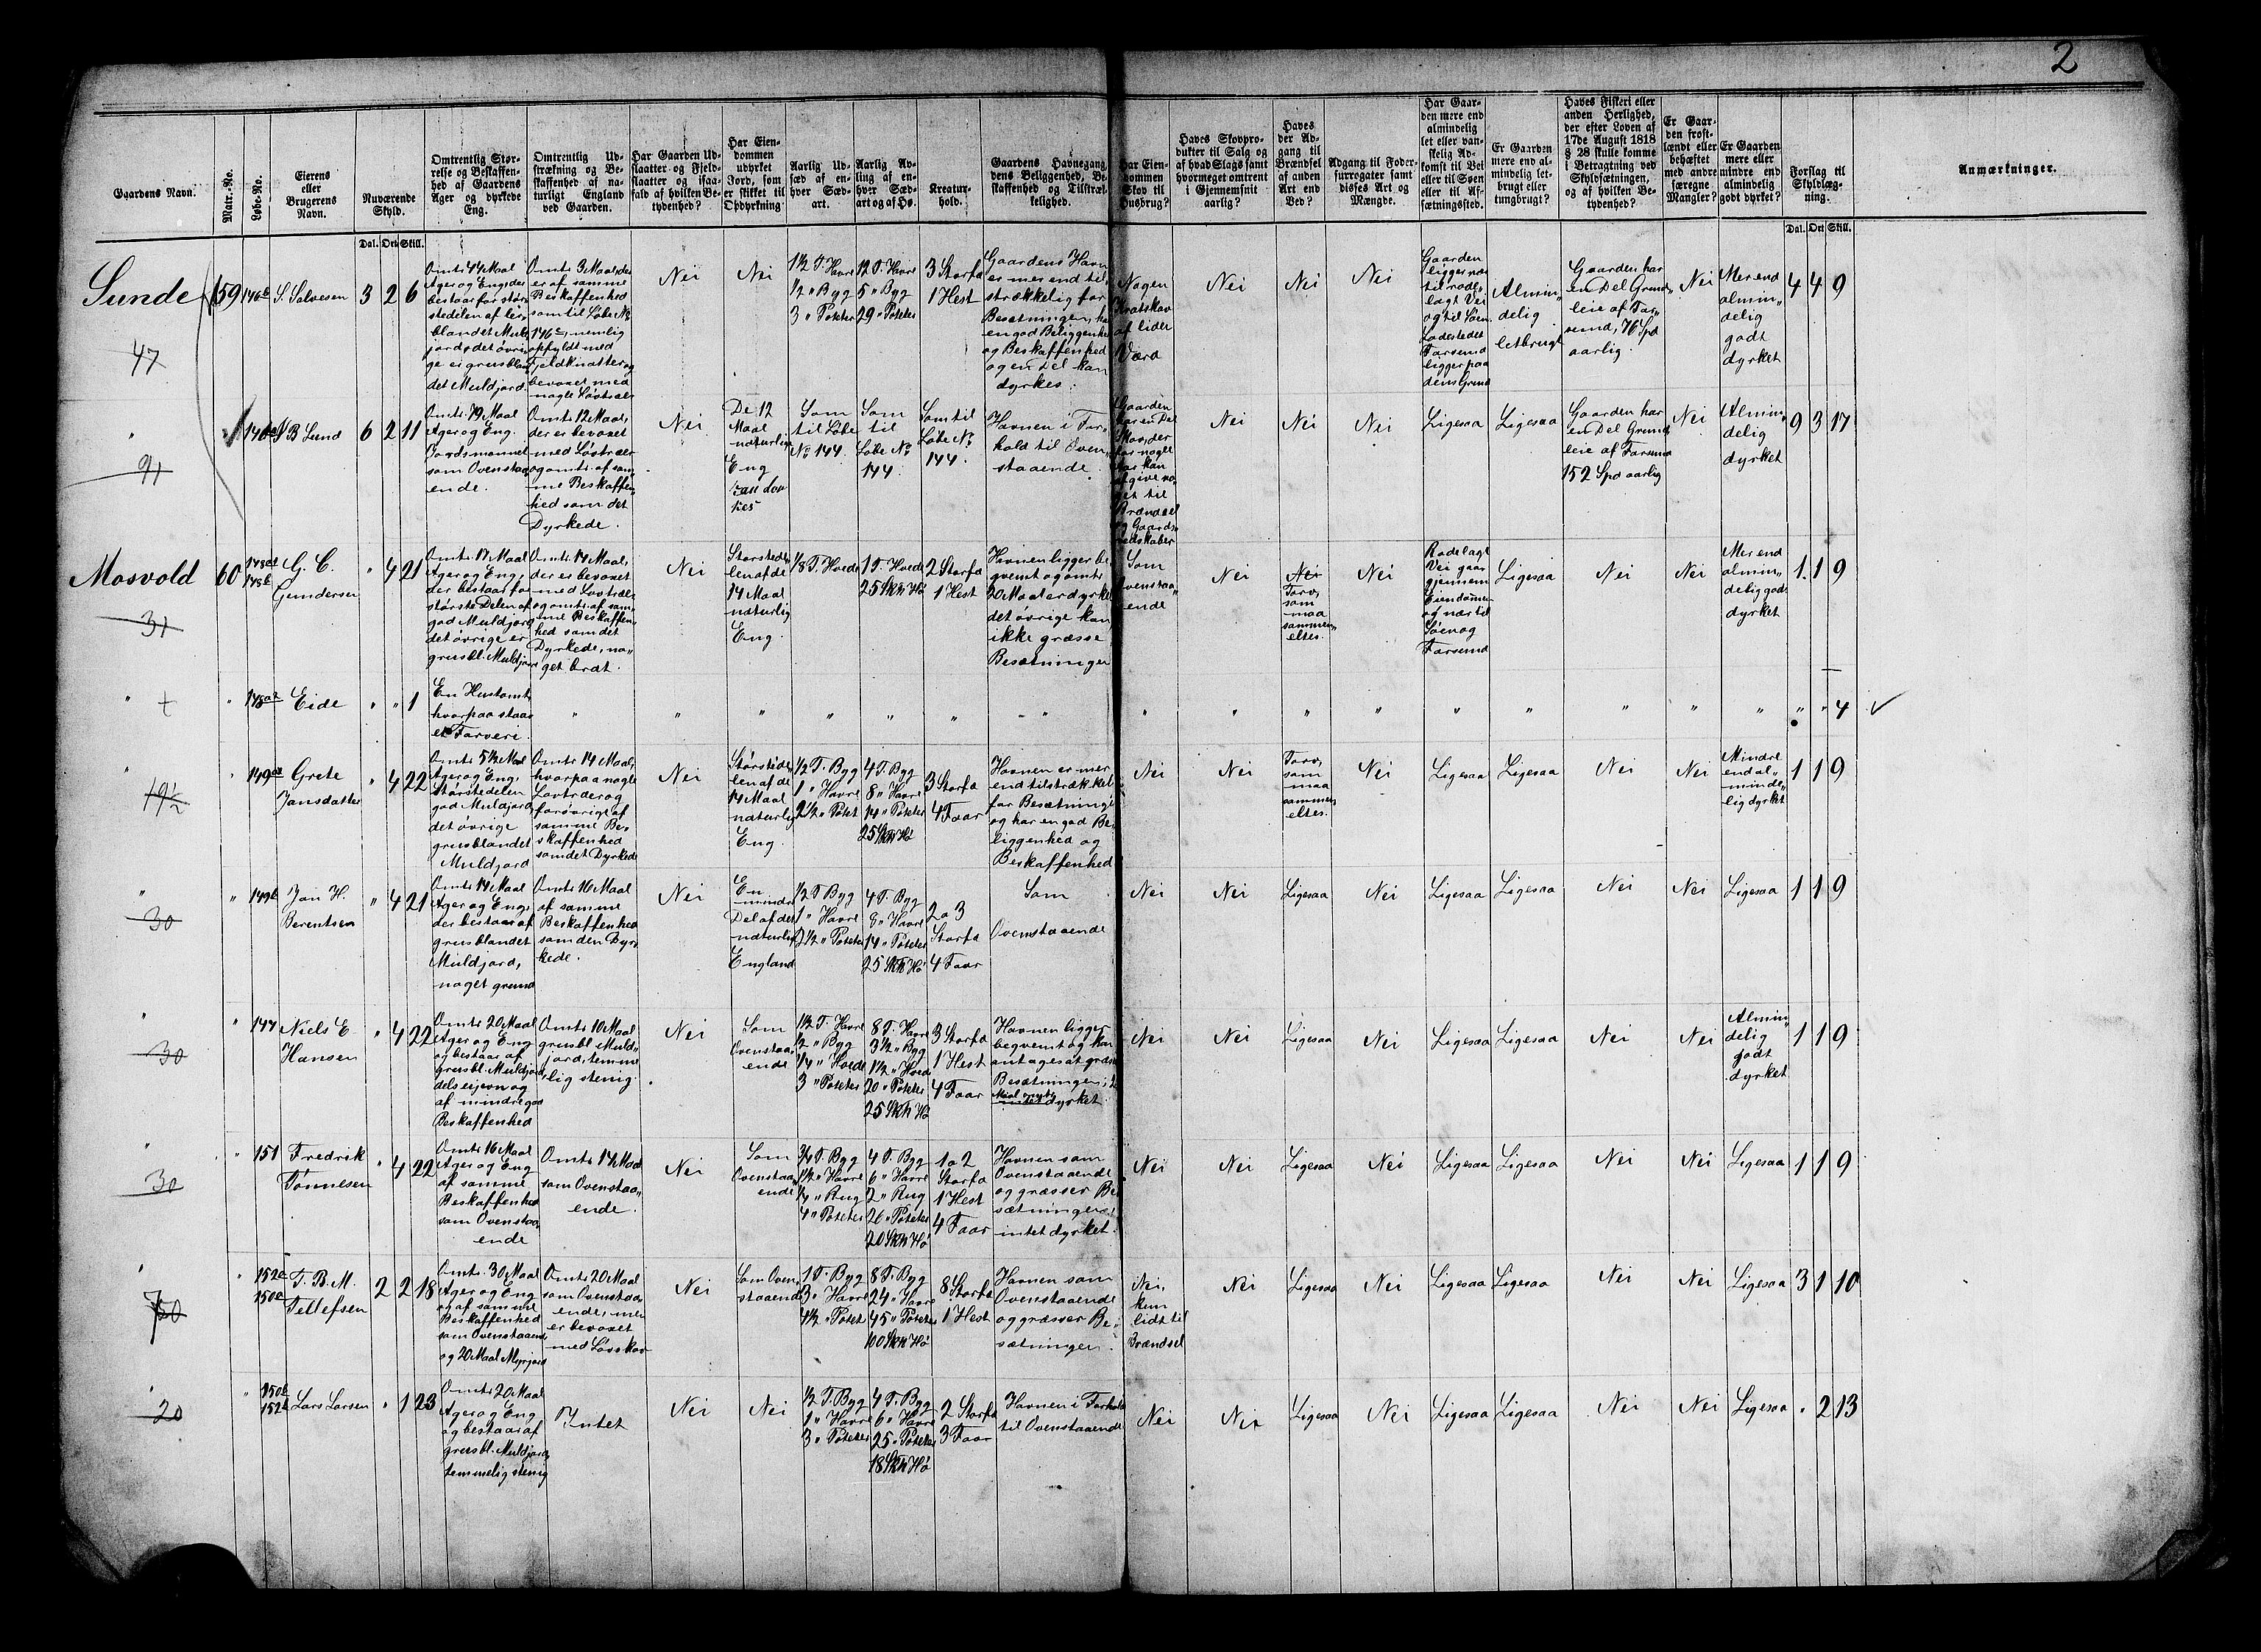 2
Gaardens Navn.
Matr.-No.
Løbe-No.
Eierens
eller
Brugerens
Navn.
Nuværende
Skyld.
Omtrentlig Stør-
relse og Beskaffen-
hed af Gaardens
Ager og dyrkede
Eng.
Omtrentlig Ud-
strækning og Be-
skaffenhed af na-
turligt England
ved Gaarden.
Har Gaarden Ud-
slaatter og Fjeld-
slaatter og isaa-
fald af hvilken Be-
tydenhed?
Har Eien-
dommen
udyrket
Jord, som
er skikket til
Opdyrkning
Aarlig Ud-
sæd af en-
hver Sæd-
art.
Aarlig Av-
ling af en-
hver Sæd-
art og af Hø.
Kreatur-
hold.
Gaardens Havnegang,
dens Beliggenhed, Be-
skaffenhed og Tilstræk-
kelighed.
Har Eien-
dommen
Skov til
Husbrug?
Haves Skovpro-
dukter til Salg og
af hvad Slags samt
hvormeget omtrent
i Gjennemsnit
aarlig?
Haves
der Ad-
gang til
Brændsel
af anden
Art end
Ved?
Adgang til Foder-
surrogater samt
disses Art og
Mængde.
Har Gaar-
den mere end
almindelig
let eller van-
skelig Ad-
komst til Vei
eller til Søen
eller til Af-
sætningssted.
Er Gaarden
mere end al-
mindelig let-
brugt eller
tungbrugt?
Haves Fiskeri eller
anden Herlighed,
der efter Loven af
17de August 1818
§ 28 skulle komme
i Betragtning ved
Skyldsætningen,
og af hvilken Be-
tydenhed?
Er Gaar-
den frost-
lændt eller
behæftet
med andre
særegne
Mangler?
Er Gaarden
mere eller
mindre end
almindelig
godt dyrket?
Forslag til
Skyldlæg-
ning.
Anmærkninger.
Dal. Ort Skill.
Dal. Ort Skill.
Sunde
47
59
146b
S. Salvesen
3 2 6
Omtr. 44 Maal
Ager og Eng, der
bestaar for stør-
stedelen af ler-
blandet Muld-
jord, det øvri-
ge er grusblan-
det Muldjord.
Omtr. 3 Maal, der
er af samme
Beskaffenhed
som til Løbe No
146c, nemlig
opfyldt med
Fjeldknatter og
bevoxet med
nogle Løvtræer
Nei
Nei
1½ T. Havre
½ " Byg
3 " Poteter
12 T. Havre
5 " Byg
29 " Poteter
3 Storfæ
1 Hest
Gaardens Havn
er mer end til-
strækkelig for
Besætningen, har
en god Beliggenhed
og Beskaffenhed
og en Del kan
dyrkes.
Nogen
Kratskov
af liden
Værd
Nei
Nei
Nei
Gaarden
ligger nær
til rode-
lagt Vei
og til Søen
Ladestedet
Farsund
ligger paa
dens Grund
Almin-
delig
letbrugt
Gaarden har
en Del Grund-
leie af Far-
sund, 76 Spd
aarlig.
Nei
Mer end
almin-
delig
godt
dyrket
4 4 9
"
91
"
B Lund
6 2 11
Omtr. 79 Maal
Ager og Eng.
Jordsmonnet
som Ovenstaa-
ende.
Omtr. 12 Maal,
der er bevoxet
med Løvtræer
og omtr. af sam-
me Beskaffen-
hed som det
Dyrkede.
Nei
De 12
Maal
naturlig
Eng
kan dyr-
kes
Som
til Løbe
No 144
Som
til
Løbe No
144.
Som til
Løbe No
144.
Havnen i For-
hold til Oven-
staaende.
Gaarden
har en Del
Skov, der
for nogle
Aar kan
afgive no-
get til
Brændsel
og Gaards-
redskaber
Nei
Nei
Nei
Ligesaa
Ligesaa
Gaarden har
en Del Grund-
leie af Farsund
152 Spd aarlig
Nei
Almin-
delig
dyrket
9 3 17
Mosvold
31
60
148a1
148b
G. C.
Gundersen
" 4 21
Omtr. 17 Maal
Ager og Eng,
der bestaar for
største Delen af
god Muldjord
det øvrige er
grusbl. Muldjord
Omtr. 14 Maal,
der er bevoxet
med Løvtræer
og omtr. af sam-
me Beskaffen-
hed som det
Dyrkede, no-
get brat.
Nei
Størstede-
len af de
14 Maal
naturlig
Eng.
1/8 T. Hvede
1 T. Hvede
25 Sk℔ Hø
2 Storfæ
1 Hest
Havnen ligger be-
qvemt og omtr.
20 Maal er dyrket
det øvrige kan
ikke græsse
Besætningen
Som
Ovenstaa-
ende
Nei
Nei
Torv,
som
maa
sammen-
eltes.
Nei
Rodelagt
Vei gaar
gjennem
Eiendommen
og nær til
Søen og
Farsund
Ligesaa
Nei
Nei
Mer end
almin-
delig godt
dyrket
1 1 9
" + " 148a2
Eide
" " 1
En Hustomt
hvorpaa staar
et Farveri.
" " " " " " " " " " " " " " " " " " 4 ✓
"
19½
" 149a
Grete
Jansdatter
" 4 22
Omtr. 5½ Maal
Ager og Eng,
Størstedelen
god Muldjord,
det øvrige
grusblandet
Muldjord
Omtr. 14 Maal,
hvorpaa nogle
Løvtræer og
forøvrigt af
samme Be-
skaffenhed
som det Dyrkede
Nei
Størstede-
len af de
14 Maal
naturlig
Eng.
½ T. Byg
1 " Havre
2½ " Potet
4 T. Byg
8 " Havre
14 " Poteter
25 Sk℔ Hø
3 Storfæ
4 Faar
Havnen er mer
end tilstrækkelig
for Besætningen
og har en god Be-
liggenhed og
Beskaffenhed
Nei
Nei
Torv,
som
maa
sammen-
eltes.
Nei
Ligesaa
Ligesaa
Nei
Nei
Mindre
end al-
minde-
lig dyrket
1 1 9
"
30
" 149b
Jan H.
Berentsen
" 4 21
Omtr. 14 Maal
Ager og Eng,
der bestaar af
grusblandet
Muldjord,
noget grund
Omtr. 16 Maal
af samme
Beskaffenhed
som den Dyr-
kede.
Nei
En
mindre
Del af det
naturlige
England
½ T. Byg
1 " Havre
2½ " Poteter
4 T. Byg
8 " Havre
14 " Poteter
25 Sk℔ Hø
2 a 3
Storfæ
4 Faar
Som
Ovenstaaende
Nei
Nei
Ligesaa
Nei
Ligesaa
Ligesaa
Nei
Nei
Ligesaa
1 1 9
"
30
" 147
Niels E
Hansen
" 4 22
Omtr. 20 Maal
Ager og Eng
og bestaar af
grusbl. Muldjord,
dels ejevn og
af mindre god
Beskaffenhed
Omtr. 10 Maal
grusbl. Muld-
jord, temme-
lig stenig.
Nei
Som
Ovenstaa-
ende
1½ T. Havre
½ " Byg
¼ " Hvede
3 " Poteter
8 T. Havre
3½ " Byg
1½ " Hvede
20 " Poteter
25 Sk℔ Hø
3 Storfæ
1 Hest
4 Faar
Havnen ligger
beqvemt og kan
antages at græsse
Besætningen,
dyrket.
Nei
Nei
Ligesaa
Nei
Ligesaa
Ligesaa
Nei
Nei
Almin-
delig
godt
dyrket
1 1 9
"
30
" 151
Fredrik
Tønnesen
" 4 22
Omtr. 16 Maal
Ager og Eng
af samme
Beskaffenhed
som Ovenstaa-
ende
Omtr. 14 Maal
som Ovenstaa-
ende.
Nei
Som
Ovenstaa-
ende
¾ T. Byg
1½ " Havre
¼ " Rug
4 " Poteter
4 T. Byg
6 " Havre
2 " Rug
26 " Poteter
20 Sk℔ Hø
1 a 2
Storfæ
1 Hest
4 Faar
Havnen som
Ovenstaaende
og græsser Be-
sætningen,
intet dyrket.
Nei
Nei
Ligesaa
Nei
Ligesaa
Ligesaa
Nei
Nei
Ligesaa
1 1 9
"
" 152a
150a
T. B. M.
Tellefsen
2 2 18
Omtr. 30 Maal
Ager og Eng
og af samme
Beskaffenhed
som Ovenstaaende
og 20 Maal Myrjord
Omtr. 20 Maal
som Ovenstaa-
ende, men
er bevoxet
med Løvskov
Nei
Som Oven-
staaende
1 T. Byg
3 " Havre
4½ " Potet
8 T. Byg
24 " Havre
45 " Poteter
100 Sk℔ Hø
8 Storfæ
1 Hest
Havnen som
Ovenstaaende
og græsser Be-
sætningen.
Nei,
kun
lidt til
Brændsel
Nei
Ligesaa
Nei
Ligesaa
Ligesaa
Nei
Nei
Ligesaa
3 1 10
"
20
" 150b
152b
Lars Larsen
" 1 23
Omtr. 20 Maal
Ager og Eng
og bestaar af
grusbl. Muldjord,
temmelig stenig
Intet
Nei
Nei
½ T. Byg
1 " Havre
3 " Poteter
4 T. Byg
6 " Havre
25 " Poteter
18 Sk℔ Hø
2 Storfæ
3 Faar
Havnen i Forhold
til Ovenstaaende
Nei
Nei
Ligesaa
Nei
Ligesaa
Ligesaa
Nei
Nei
Ligesaa
" 2 13